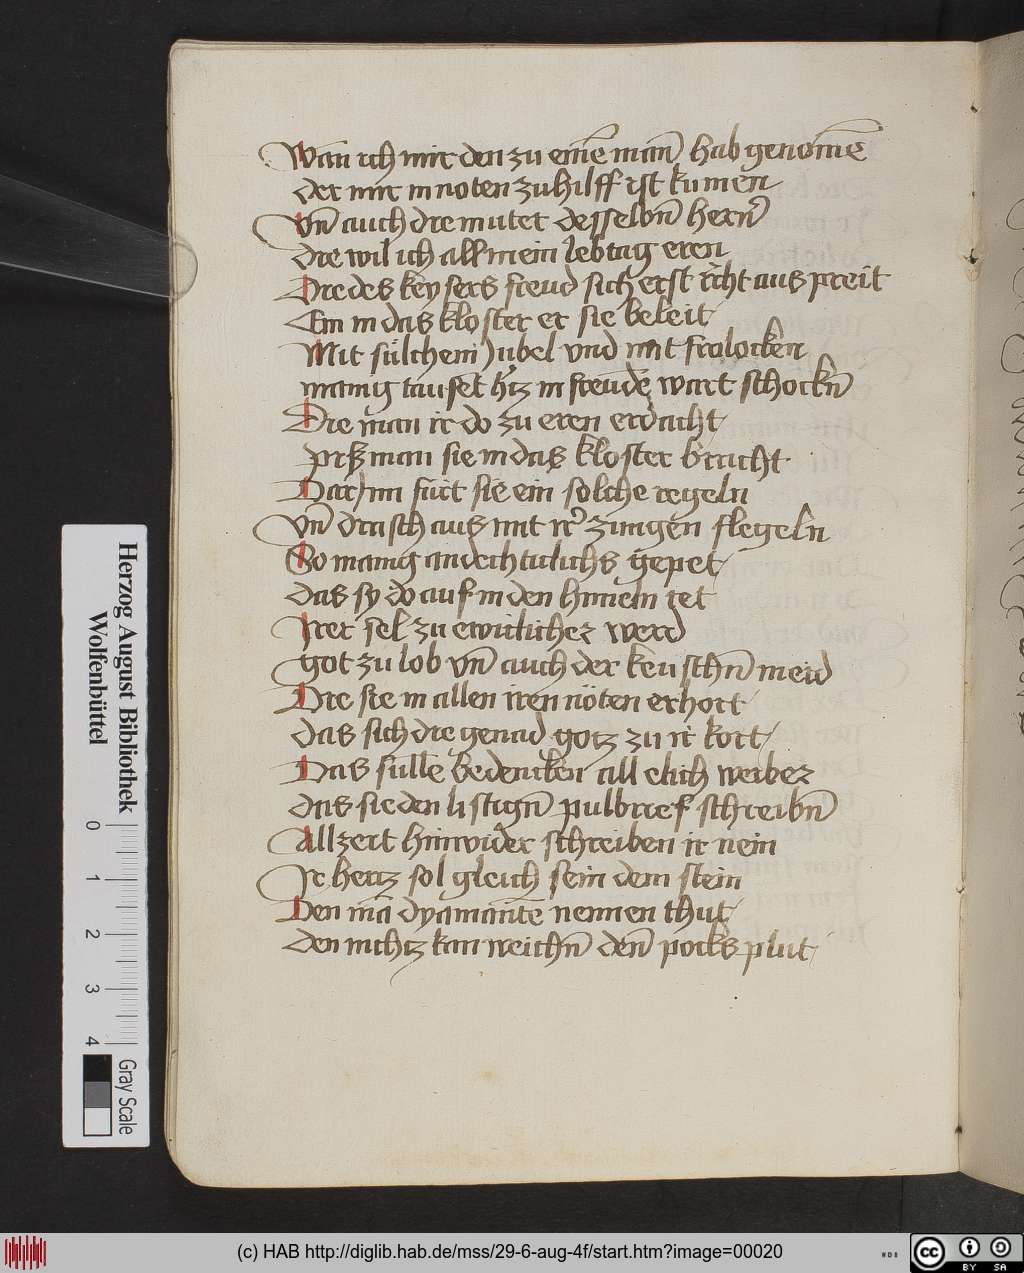 Wan̄ ich mir den zu einē man̄ hab genomē
der mir in noten zu hilff ist kumen
vn̄ auch die muter desselbn̄ hern̄
die wil ich all mein lebtag eren
Die des keysers freud sich erst r̄cht aus preit
Ein in das kloster er sie beleit
Mit sülchem Jubel vnd mit frolocken
manig tauset h̄tz in freude wart schockn̄
Die man ir do zu eren erdacht
piß man sie in das kloster bracht
Dar Jnn fürt sie ein solche regeln
vn̄ drasch aus mit ir zungen flegeln
So manig andechticlichs gepet
das sy do auf in den himeln tet
Irer sel zu ewiclicher werd
got zu lob vn̄ auch der keuschn̄ meid
Die sie in allen iren nöten erhort
das sich die genad gotz zu ir kort
Das sulle bedencken all elich weiber
das sie den listign̄ pulbrief schreibn̄
Allzeit hinwider schreiben ir nein
Ir hertz sol gleich sein dem stein
Den mā dyamante nennen thut
den nichtz kan weichn̄ den̄ pocks plut
Herzog August Bibliothek
Wolfenbüttel
0 1 2 3 4
Gray Scale
(c) HAB http://diglib.hab.de/mss/29-6-aug-4f/start.htm?image=00020
WDB
cc BY SA